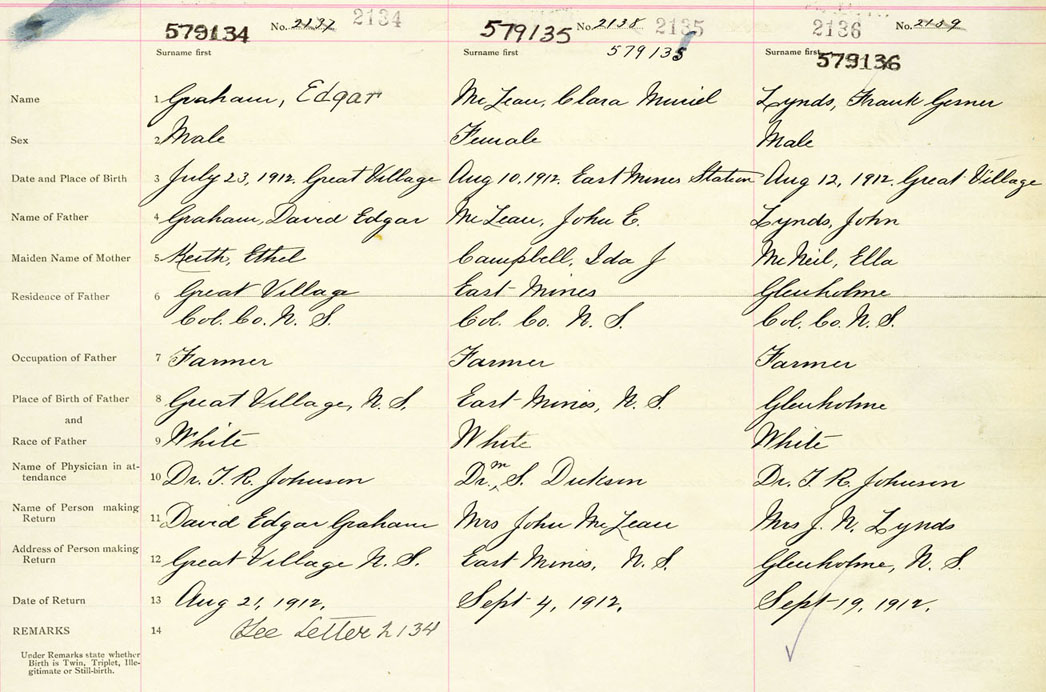 579134 No. 2137 2134 579135 No. 2138 2135 2136 No. 2139
Surname first Surname first 579135 Surname first 579136
Name 1 Graham, Edgar McLean, Clara Muriel Lynds, Frank Gesner
Sex 2 Male Female Male
Date and Place of Birth 3 July 23, 1912. Great Village Aug 10, 1912. East Mines Station Aug 12, 1912. Great Village
Name of Father 4 Graham, David Edgar McLean, John E. Lynds, John
Maiden Name of Mother 5 Keith, Ethel Campbell, Ida J McNeil, Ella
Residence of Father 6 Great Village East Mines Glenholme
Col. Co. N. S. Col. Co. N. S. Col. Co. N. S.
Occupation of Father 7 Farmer Farmer Farmer
Place of Birth of Father 8 Great Village, N. S. East Mines, N. S. Glenholme
and
Race of Father 9 White White White
Name of Physician in at-
tendance 10 Dr. T. R. Johnson Dr. M S. Dickson Dr. T R. Johnson
Name of Person making
Return 11 David Edgar Graham Mrs John McLean Mrs J. N. Lynds
Address of Person making
Return 12 Great Village N. S. East Mines, N. S. Glenholme, N. S.
Date of Return 13 Aug 21, 1912. Sept 4, 1912. Sept 19, 1912.
REMARKS 14 See Letter 2134
Under Remarks state whether
Birth is Twin, Triplet, Ille-
gitimate or Still-birth.